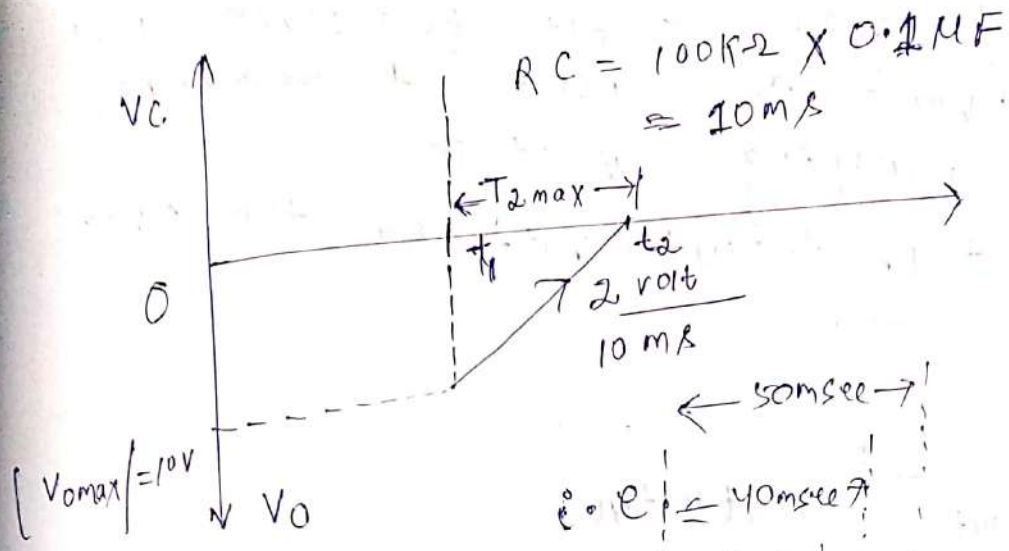 RC = 100KΩ X 0.1 MF
= 10ms
VC.
T2max
t1
t2
0
2 volt
10 ms
50msec
|Vomax|=10V
V0
i.e
40msec